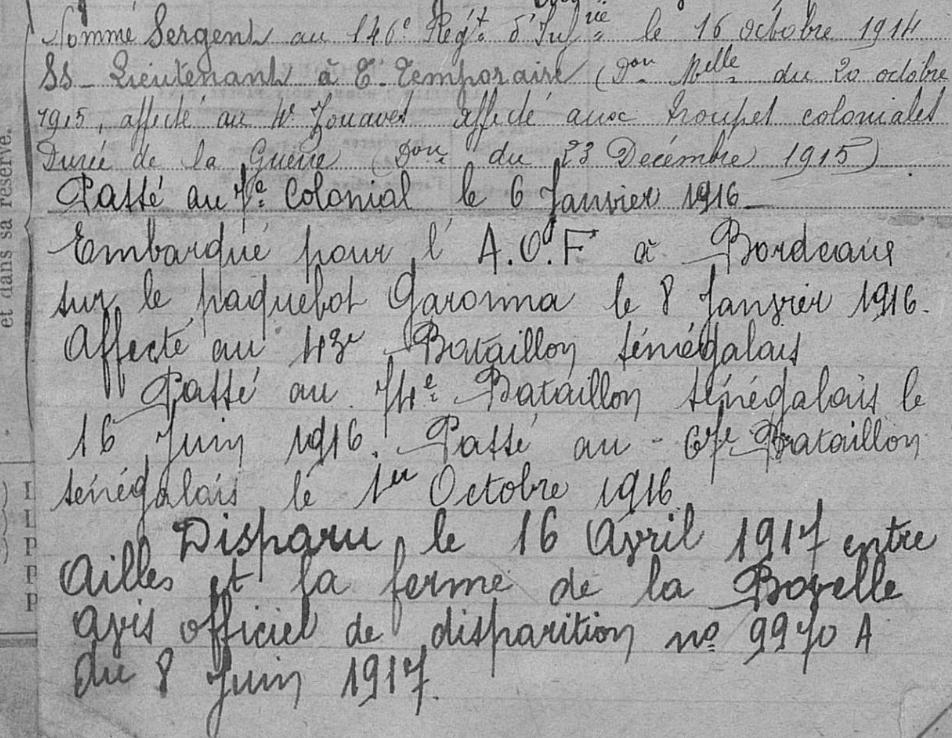 Nommé Sergent au 146e Régt d'Infrie le 16 octobre 1914
SS-Lieutenant à T. Temporaire (Don Melle du 20 octobre
1915, affecté au 4e Zouaves affecté aux troupes coloniales
Durée de la Guerre (Don du 23 Decémbre 1915)
Passé au 7e Colonial le 6 Janvier 1916
Embarqué pour l'A.O.F à Bordeaux
sur le paquebot Garonna le 8 Janvier 1916.
Affecté au 43e Bataillon sénégalais
Passé au 74e Bataillon sénégalais le
16 Juin 1916. Passé au - 67e Bataillon
senégalais le 1er Octobre 1916
Disparu le 16 Avril 1917 entre
Ailles et la ferme de la Bovelle
avis officiel de disparition no 9970 A
du 8 Juin 1917.
et dans sa réserve.